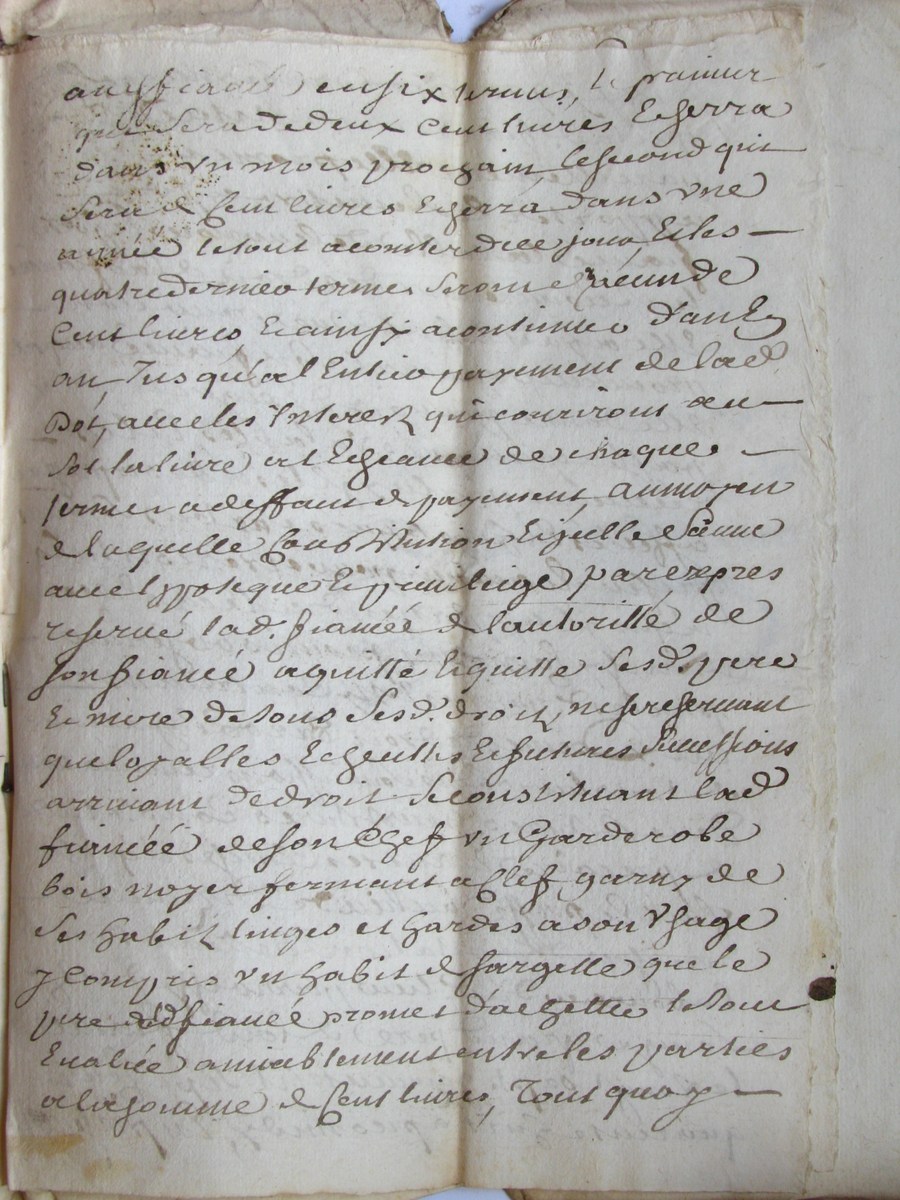 ensix termes, le premier
que sera de deux Cent livres Echerra
dans vn mois prochain, lesecond qui
sera de Cent livres Echerra dans vne
année letout aconter dece jour, Et les —
quatre dernieo termes seront chacun de
Cent livres, Et ainsy acontinueo d'an En
an Jusqu'al Entieo payement de lad.
Dot, avec les Interetz qui couriront au —
sol la livre at Echeance de chaque —
terme adeffaut de payement, aumoyen
de laquelle Constitution Et icelle
avec Lypoteque Et privileige par expres
reservé lad. fiancéé de lautoritté de
son fiancé aquitté Et quitte sesd. pere
Et mere de tous sesd. droitz, nese reservant
que loyalles Echeuttes Et futures successions
arrivant dedroit Seconstituant lad.
fiancéé deson Chef vn Garderobe
bois noyer fermant a Clef, garny de
ses habitz linges et hardes a son Vsage
y Compris vn habit de sargette que le
pere dud. fiancéé promet d'achetter letout
Evalüé amiablement entre les parties
alasomme de Cent livres, Tout quoy —